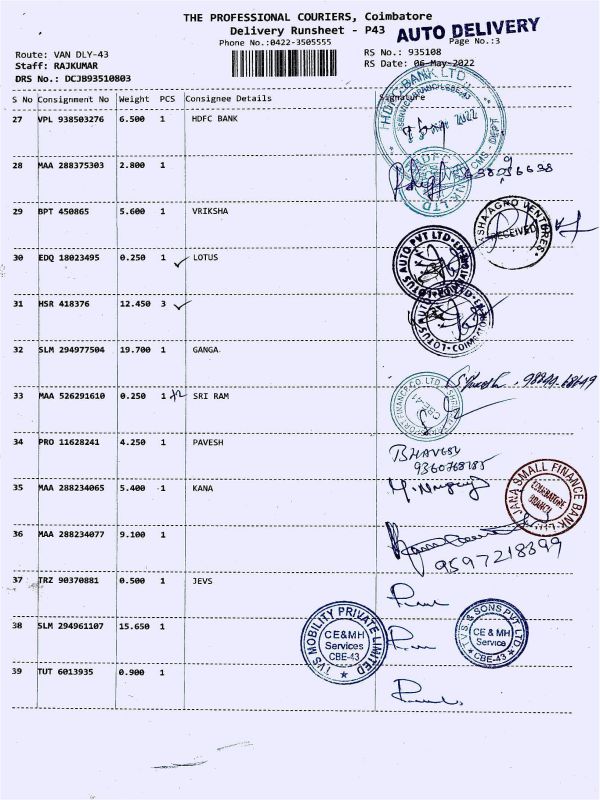 THE PROFESSIONAL COURIERS, Coimbatore
Delivery Runsheet - P43 AUTO DELIVERY
Phone No.:0422-3505555 Page No.:3
Route: VAN DLY-43 RS No.: 935108
Staff: RAJKUMAR RS Date: 06-May-2022
DRS No.: DCJB93510803
S No Consignment No Weight PCS Consignee Details Signature
27 VPL 938503276 6.500 1 HDFC BANK
HDFC BANK LTD
28 MAA 288375303 2.800 1
29 BPT 450865 5.600 1 VRIKSHA
RECEIVED
30 EDQ 18023495 0.250 1 LOTUS
LOTUS AUTO PVT LTD
31 HSR 418376 12.450 3
32 SLM 294977504 19.700 1 GANGA
33 MAA 526291610 0.250 1 SRI RAM
34 PRO 11628241 4.250 1 PAVESH
BHAVESH
9360768185
35 MAA 288234065 5.400 1 KANA
JANA SMALL FINANCE BANK LTD
COIMBATORE
BRANCH
36 MAA 288234077 9.100 1
9597218399
37 TRZ 90370881 0.500 1 JEVS
38 SLM 294961107 15.650 1
TVS MOBILITY PRIVATE LIMITED
CE&MH
Services
CBE-43
TVS & SONS PVT LTD
CE & MH
Service
CBE-43
39 TUT 6013935 0.900 1